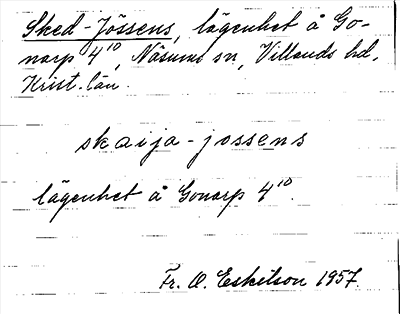 Sked-Jössens, lägenhet å Go-
narp 4¹⁰, Näsums sn, Villands hd,
Krist. län.
skaija-jossens
lägenhet å Gonarp 4¹⁰.
Fr. O. Eskilson 1957.